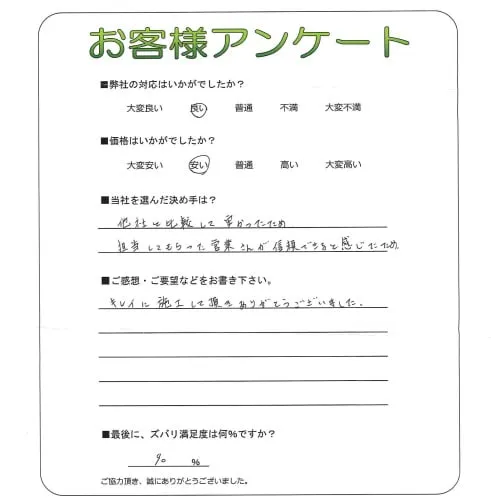 お客様アンケート
■弊社の対応はいかがでしたか?
大変良い 良い 普通 不満 大変不満
■価格はいかがでしたか?
大変安い 安い 普通 高い 大変高い
■当社を選んだ決め手は?
他社と比較して安かったため
担当してもらった営業さんが信頼できると感じたため
■ご感想・ご要望などをお書き下さい。
キレイに施工して頂きありがとうございました.
■最後に、ズバリ満足度は何%ですか?
90 %
ご協力頂き、誠にありがとうございました。